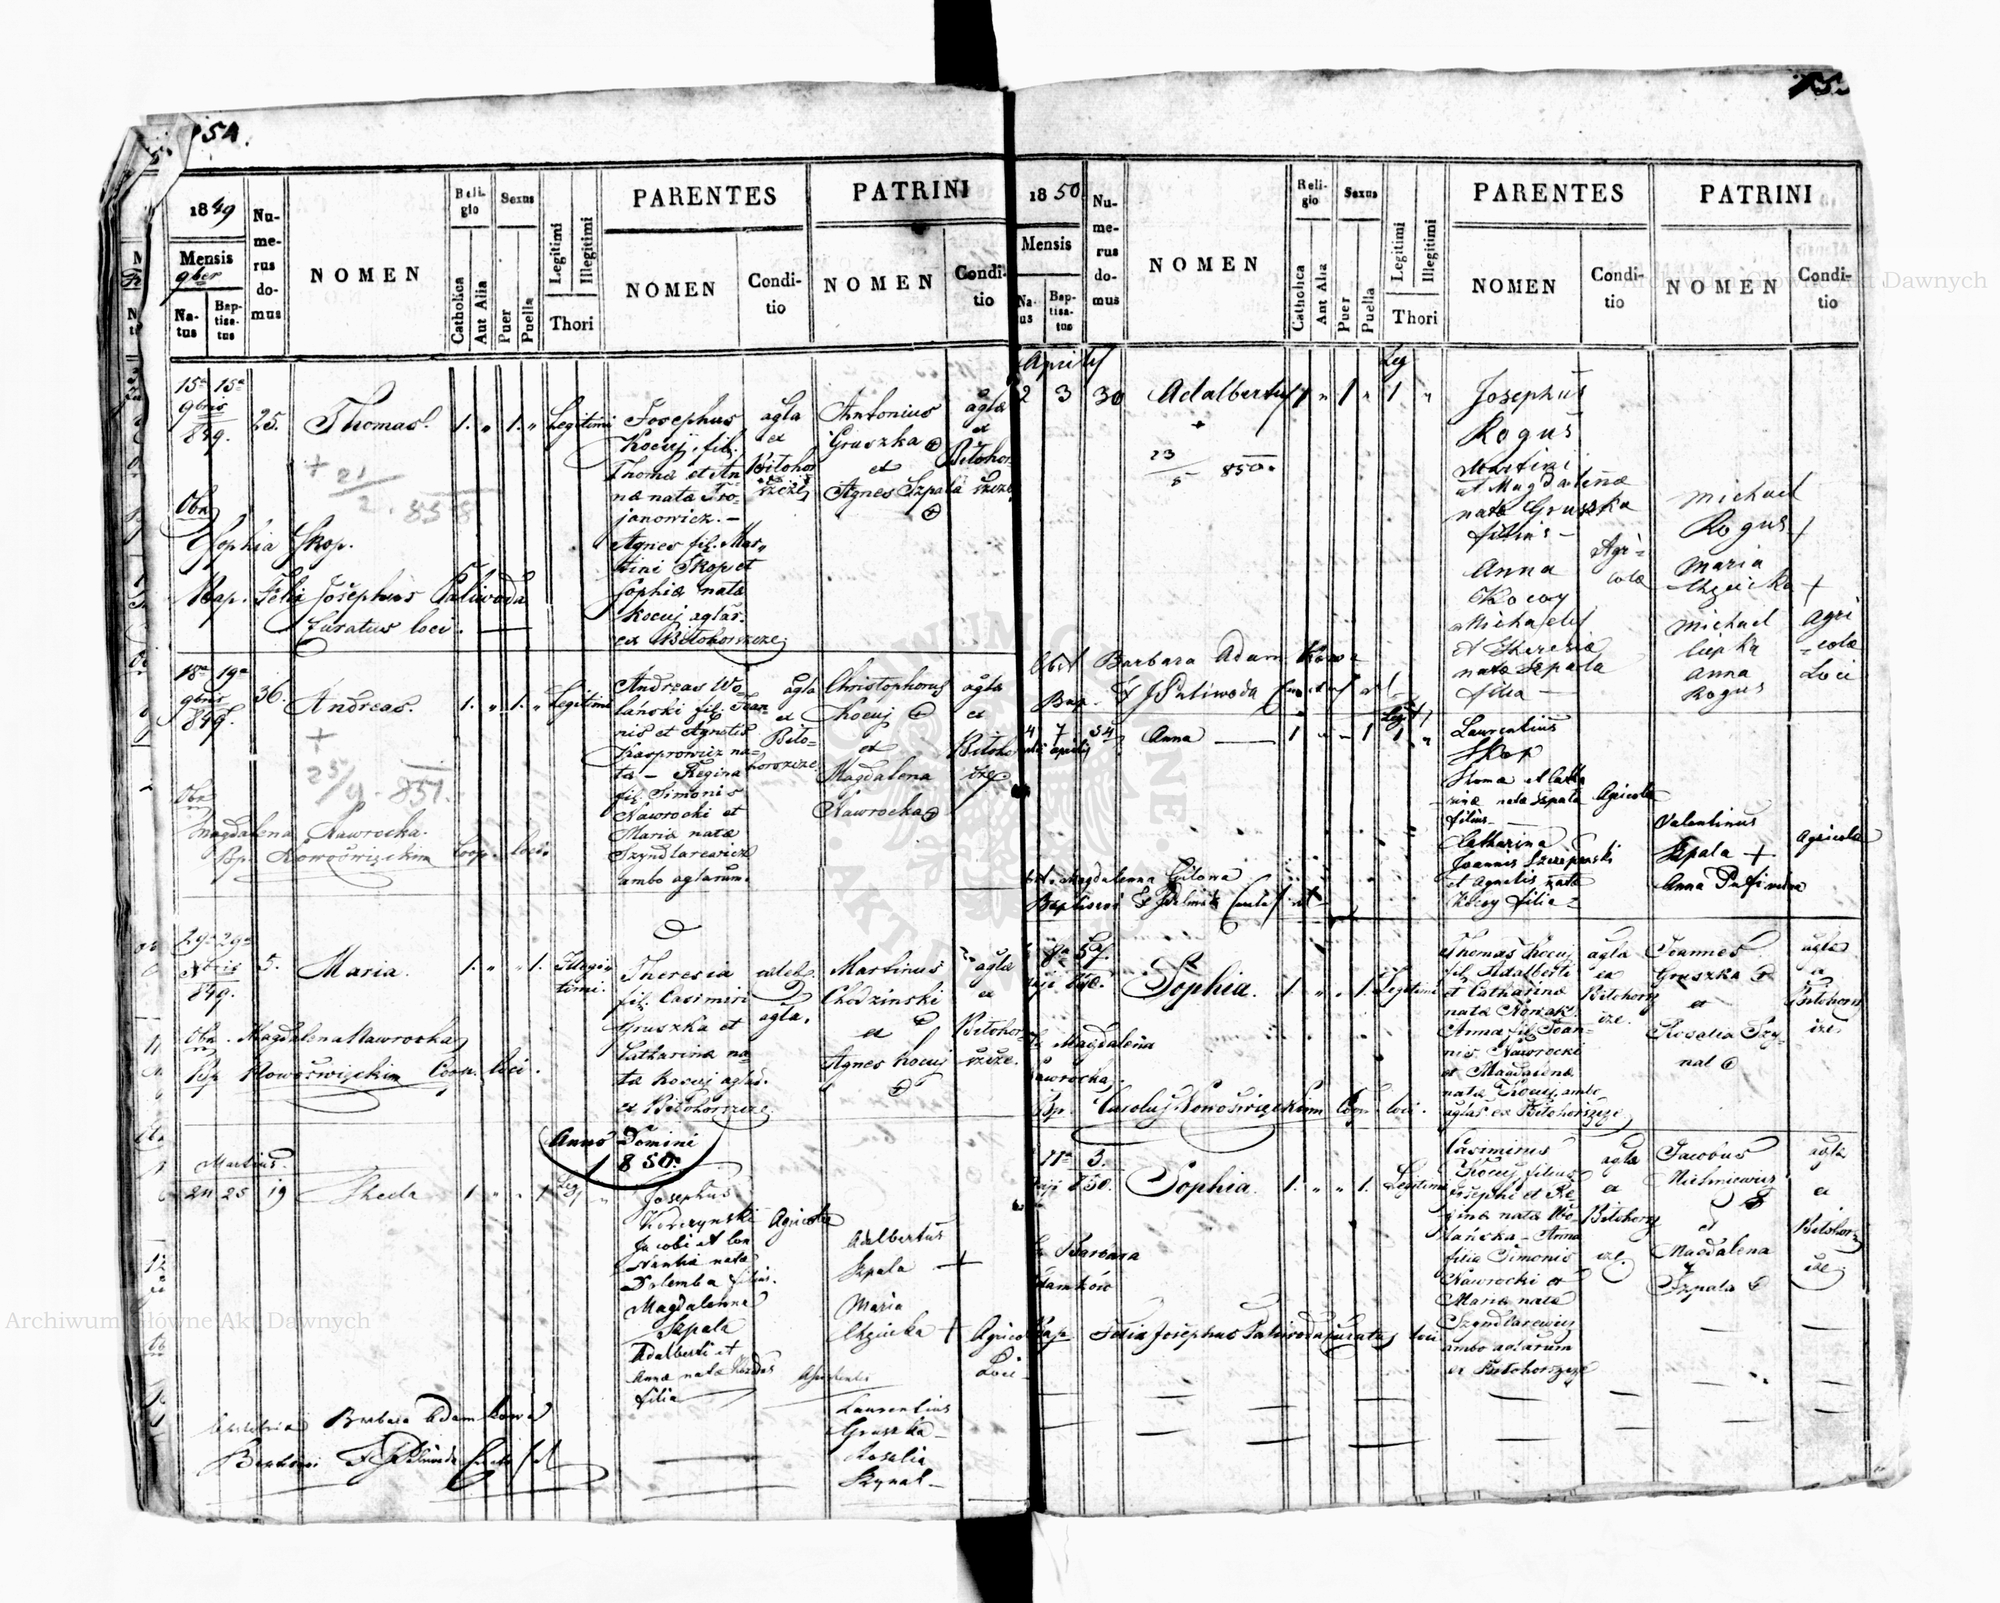 154.
1849
Mensis
9ber
Natus
Baptisatus
Numerus domus
NOMEN
Religio
Catholica
Aut Alia
Sexus
Puer
Puella
Legitimi
Illegitimi
Thori
PARENTES
NOMEN
Conditio
PATRINI
NOMEN
Conditio
15a 15a
9bris
849.
25.
Thomas.
1. " 1. "
Legitimi
Josephus
Kocuj, fil.
Thoma et An-
na nata Tro-
janowicz. –
Agnes fil. Mar-
tini Skop et
Sophia nata
Kocuj aglar.
ex Biłohorszcze
agla
ex
Biłohor
szcze
Antonius
Gruszka
et
Agnes Szpala
agla
ex
Biłohor
szcze
+ 21/2 . 858
Obs.
Sophia Skop.
Bap. Felix Josephus Paliwoda
Curatus loci.
18a 19a
9bris
849.
36.
Andreas.
1. " 1. "
Legitimi
Andreas Wo-
lański fil. Joan
nis et Agnetis
Kasprowicz na-
ta – Regina
fil. Simonis
Nawrocki et
Maria nata
Szyndlarewicz
ambo aglarum.
agla
ex
Biło-
horszcze
Christophorus
Kocuj
et
Magdalena
Nawrocka
agla
ex
Biłohor
szcze
+
25/9 . 851.
Obs.
Magdalena Nawrocka.
Bp. Nowoświęckim Coop. loci.
29a 29a
9bris
849.
5.
Maria.
1. " " 1.
Illegi-
timi.
Theresia
fil. Casimiri
Gruszka et
Catharina na-
ta Kocuj aglar.
ex Biłohorszcze
celeb.
agla.
Martinus
Chodzinski
et
Agnes Kocuj
agla
ex
Biłohor-
szcze.
Obs. Magdalena Nawrocka
Bp Nowoświęckim Coop. loci.
Anno Domini
1850.
Martius.
24 25 19
Thecla
1 " " 1
Leg
Josephus
Jacobi et Con
stantia nata
filius.
Magdalenna
Szpala
Adalberti et
Anna nata
filia
Agricola
Adalbertus
Szpala +
Maria
+
Agricol
Loci
Assistentes
Laurentius
Gruszka –
Rosalia
Szynal –
Obstetria Barbara Adamkowa
1850
Mensis
Natus
Baptisatus
Numerus domus
NOMEN
Religio
Catholica
Aut Alia
Sexus
Puer
Puella
Legitimi
Illegitimi
Thori
PARENTES
NOMEN
Conditio
PATRINI
NOMEN
Conditio
Aprilis
2 3 30
Adalbertus
1 " 1 "
Leg
1 "
+
23/5 850.
Josephus
Rogus
Martini
et Magdalena
nata Gruszka
filius –
Anna
Kocoy
Michaelis
et Theresia
nata Szpala
filia –
Agri-
cola
Michael
Rogus +
Maria
+
Michael
Anna
Rogus
Agri
-cola
Loci
Obst Barbara Adam Kowa
Bap. F J Paliwoda
4 7 34
Aprilis
Anna —
1 " " 1
Leg
1 "
Laurentius
Skop
Thoma et Catha
rina nata Szpala
filius –
Catharina
Joannis
et Agnetis nata
Kocoy filia
Agricola
Valentinus
Szpala +
Anna
Agricola
Obst. Magdalenna
9a
850.
Sophia.
1. " " 1.
Legitimi
Thomas Kocuj
fil. Adalberti
et Catharina
nata Nowak
Anna fil. Joan-
nis Nawrocki
et Magdalena
nata Kocuj ambo
aglar ex Biłohorszcze
agla
ex
Biłohorsz
cze.
Joannes
Gruszka
et
Rosalia Szy-
nal
agla
ex
Biłohorsz
cze
Magdalena
Nawrocka.
Bp. Carolus Nowoświęckim Coop. loci.
11a 3.
850.
Sophia.
1. " " 1.
Legitimi
Casimirus
Kocuj filius
Josephi et Re-
gina nata Wo-
lańska – Anna
filia Simonis
Nawrocki et
Maria nata
Szyndlarewicz
ambo aglarum
ex Biłohorszcze
agla
ex
Biłohorsz
cze
Jacobus
et
Magdalena
Szpala
agla
ex
Biłohor-
szcze
Barbara
Adamków
Bap. Felix Josephus Paliwoda Curatus loci
Archiwum Główne Akt Dawnych
Archiwum Główne Akt Dawnych
ARCHIWUM GŁÓWNE AKT DAWNYCH